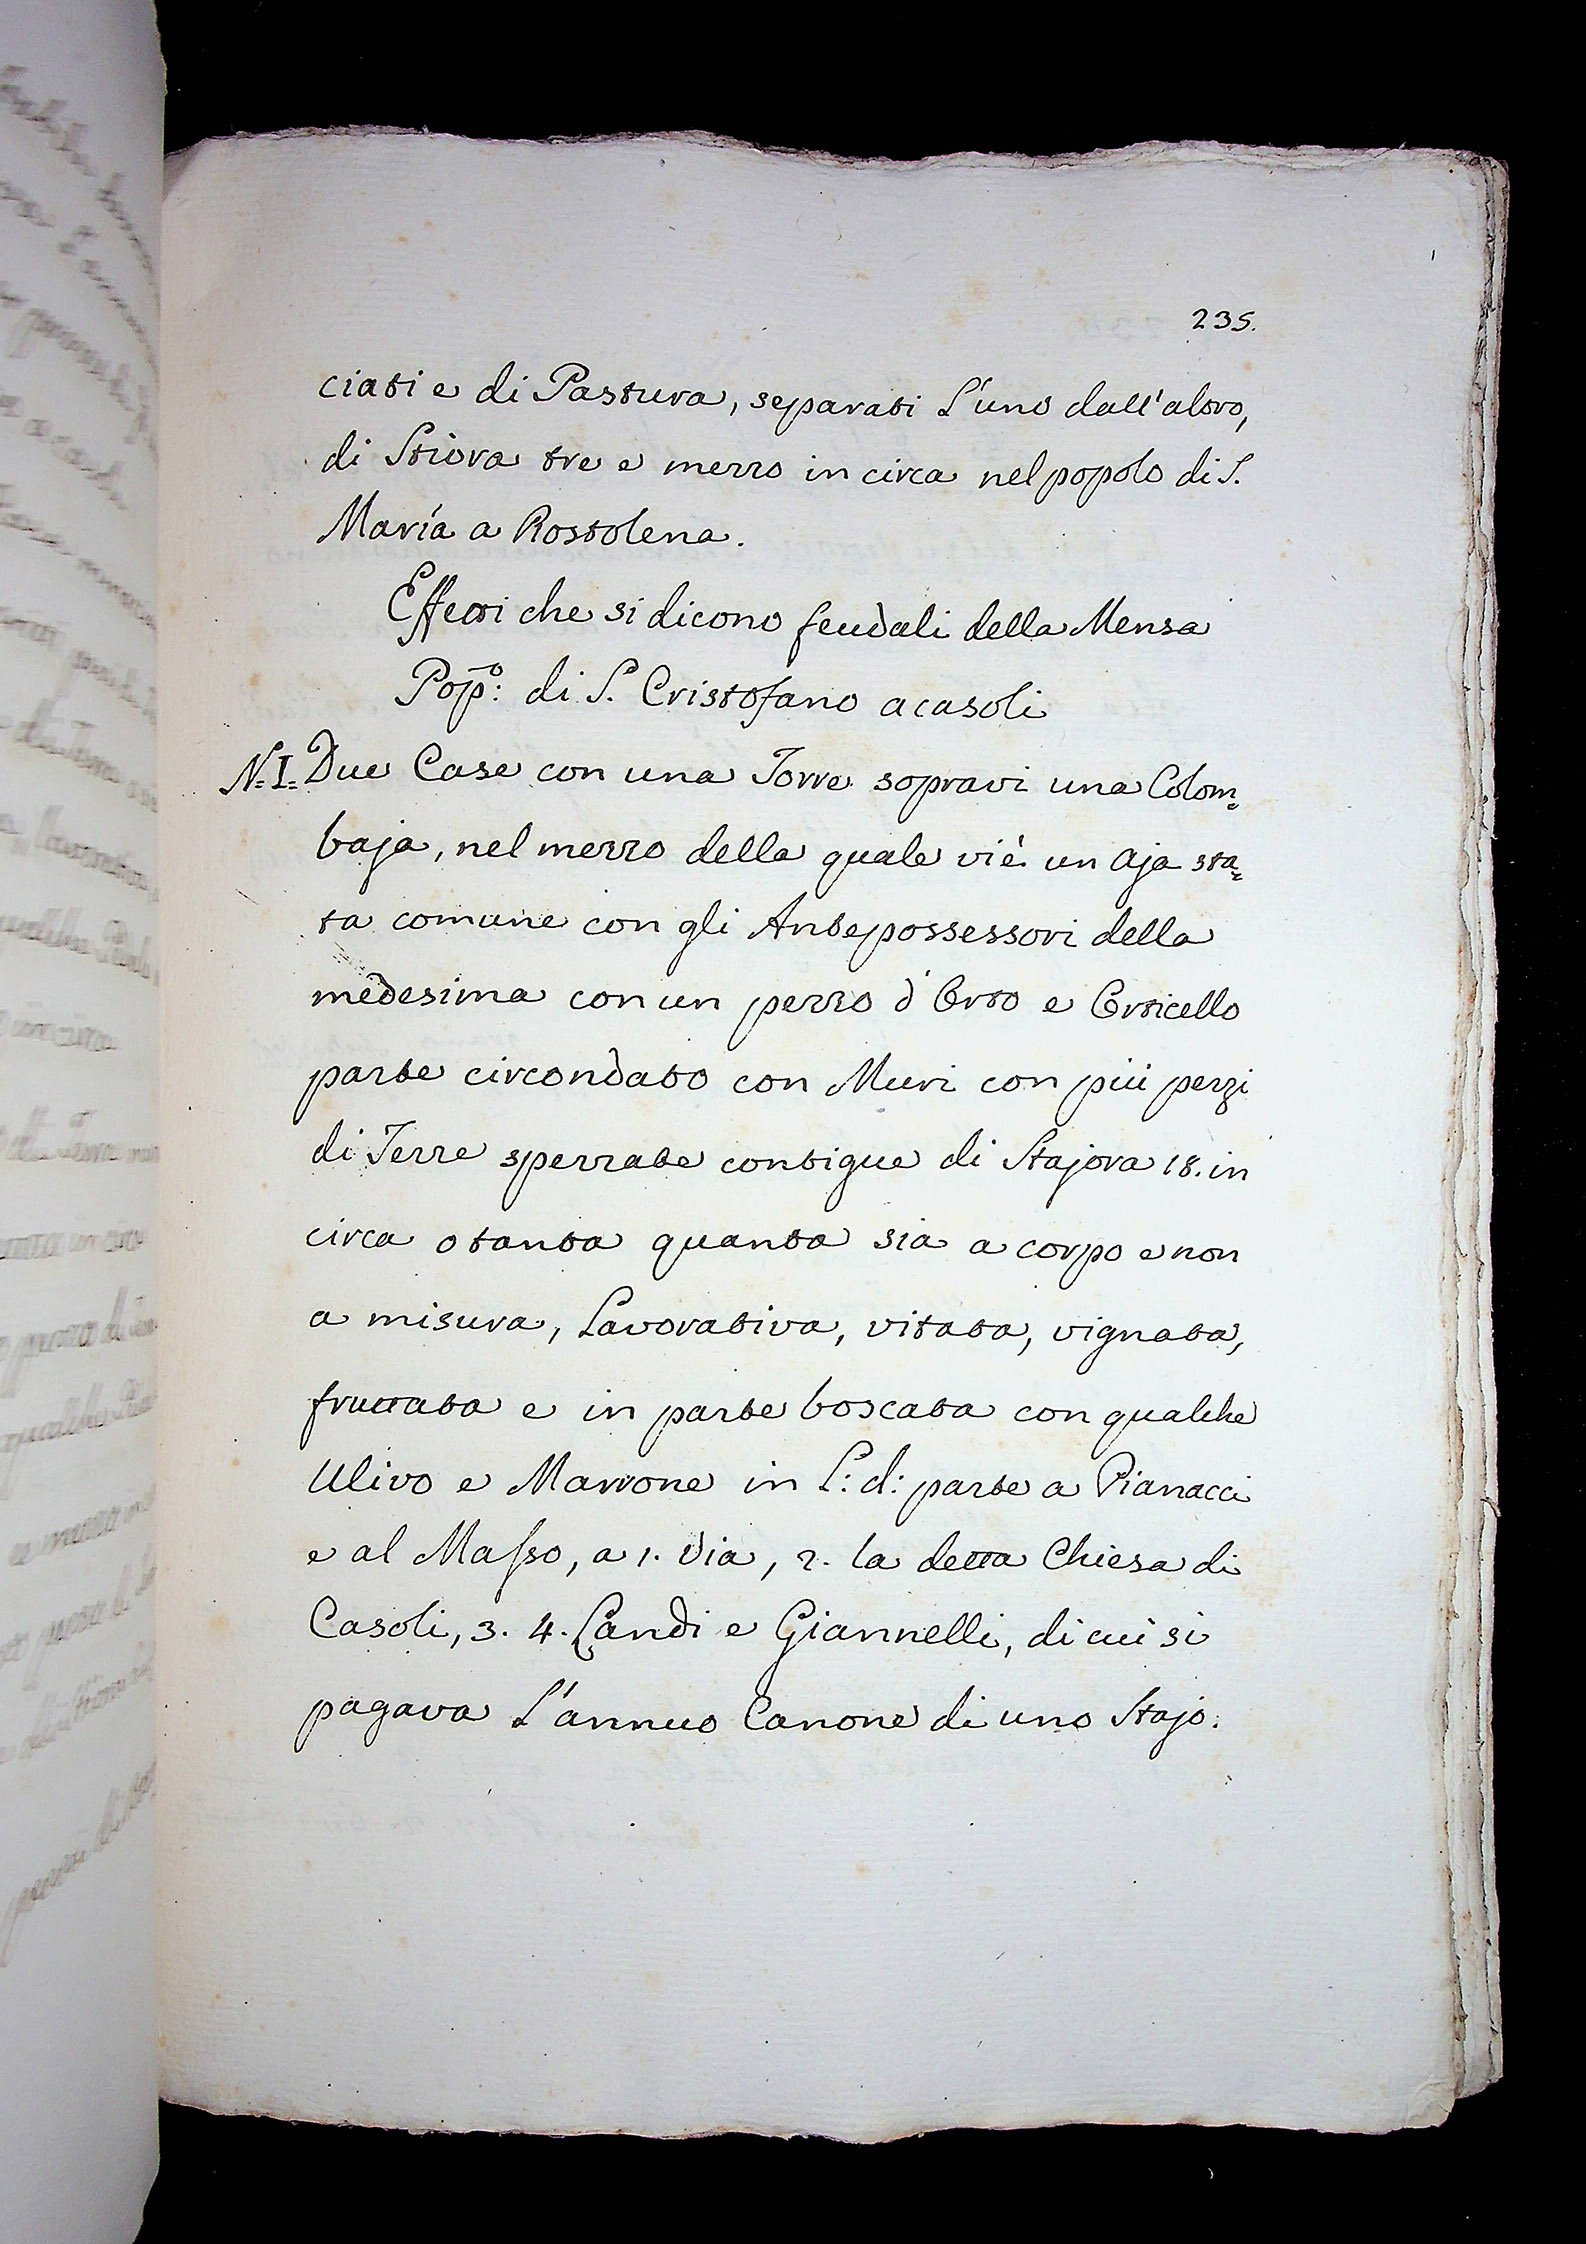 235.
ciati e di Pastura, separati L'uno dall'altro,
di Stiora tre e mezzo in circa nel popolo di S.
María a Rostolena.
Effetti che si dicono feudali della Mensa
Pop̄.º: di S. Cristofano a casoli
N.=I.= Due Case con una Torre sopravi una Colom=
baja, nel mezzo della quale vié un Aja sta=
ta comune con gli Antepossessori della
medesima con un pezzo d'Orto e Orticello
parte circondato con Muri con piú pezzi
di Terre spezzate contigue di Stajora 18. in
circa o tanta quanta sia a corpo e non
a misura, Lavorativa, vitata, vignata,
fruttata e in parte boscata con qualche
Ulivo e Marrone in L: d: parte a Pianacci
e al Maſso, a 1. Via, 2. la detta Chiesa di
Casoli, 3. 4. Landi e Giannelli, di cui si
pagava L'annuo Canone di uno Stajo.